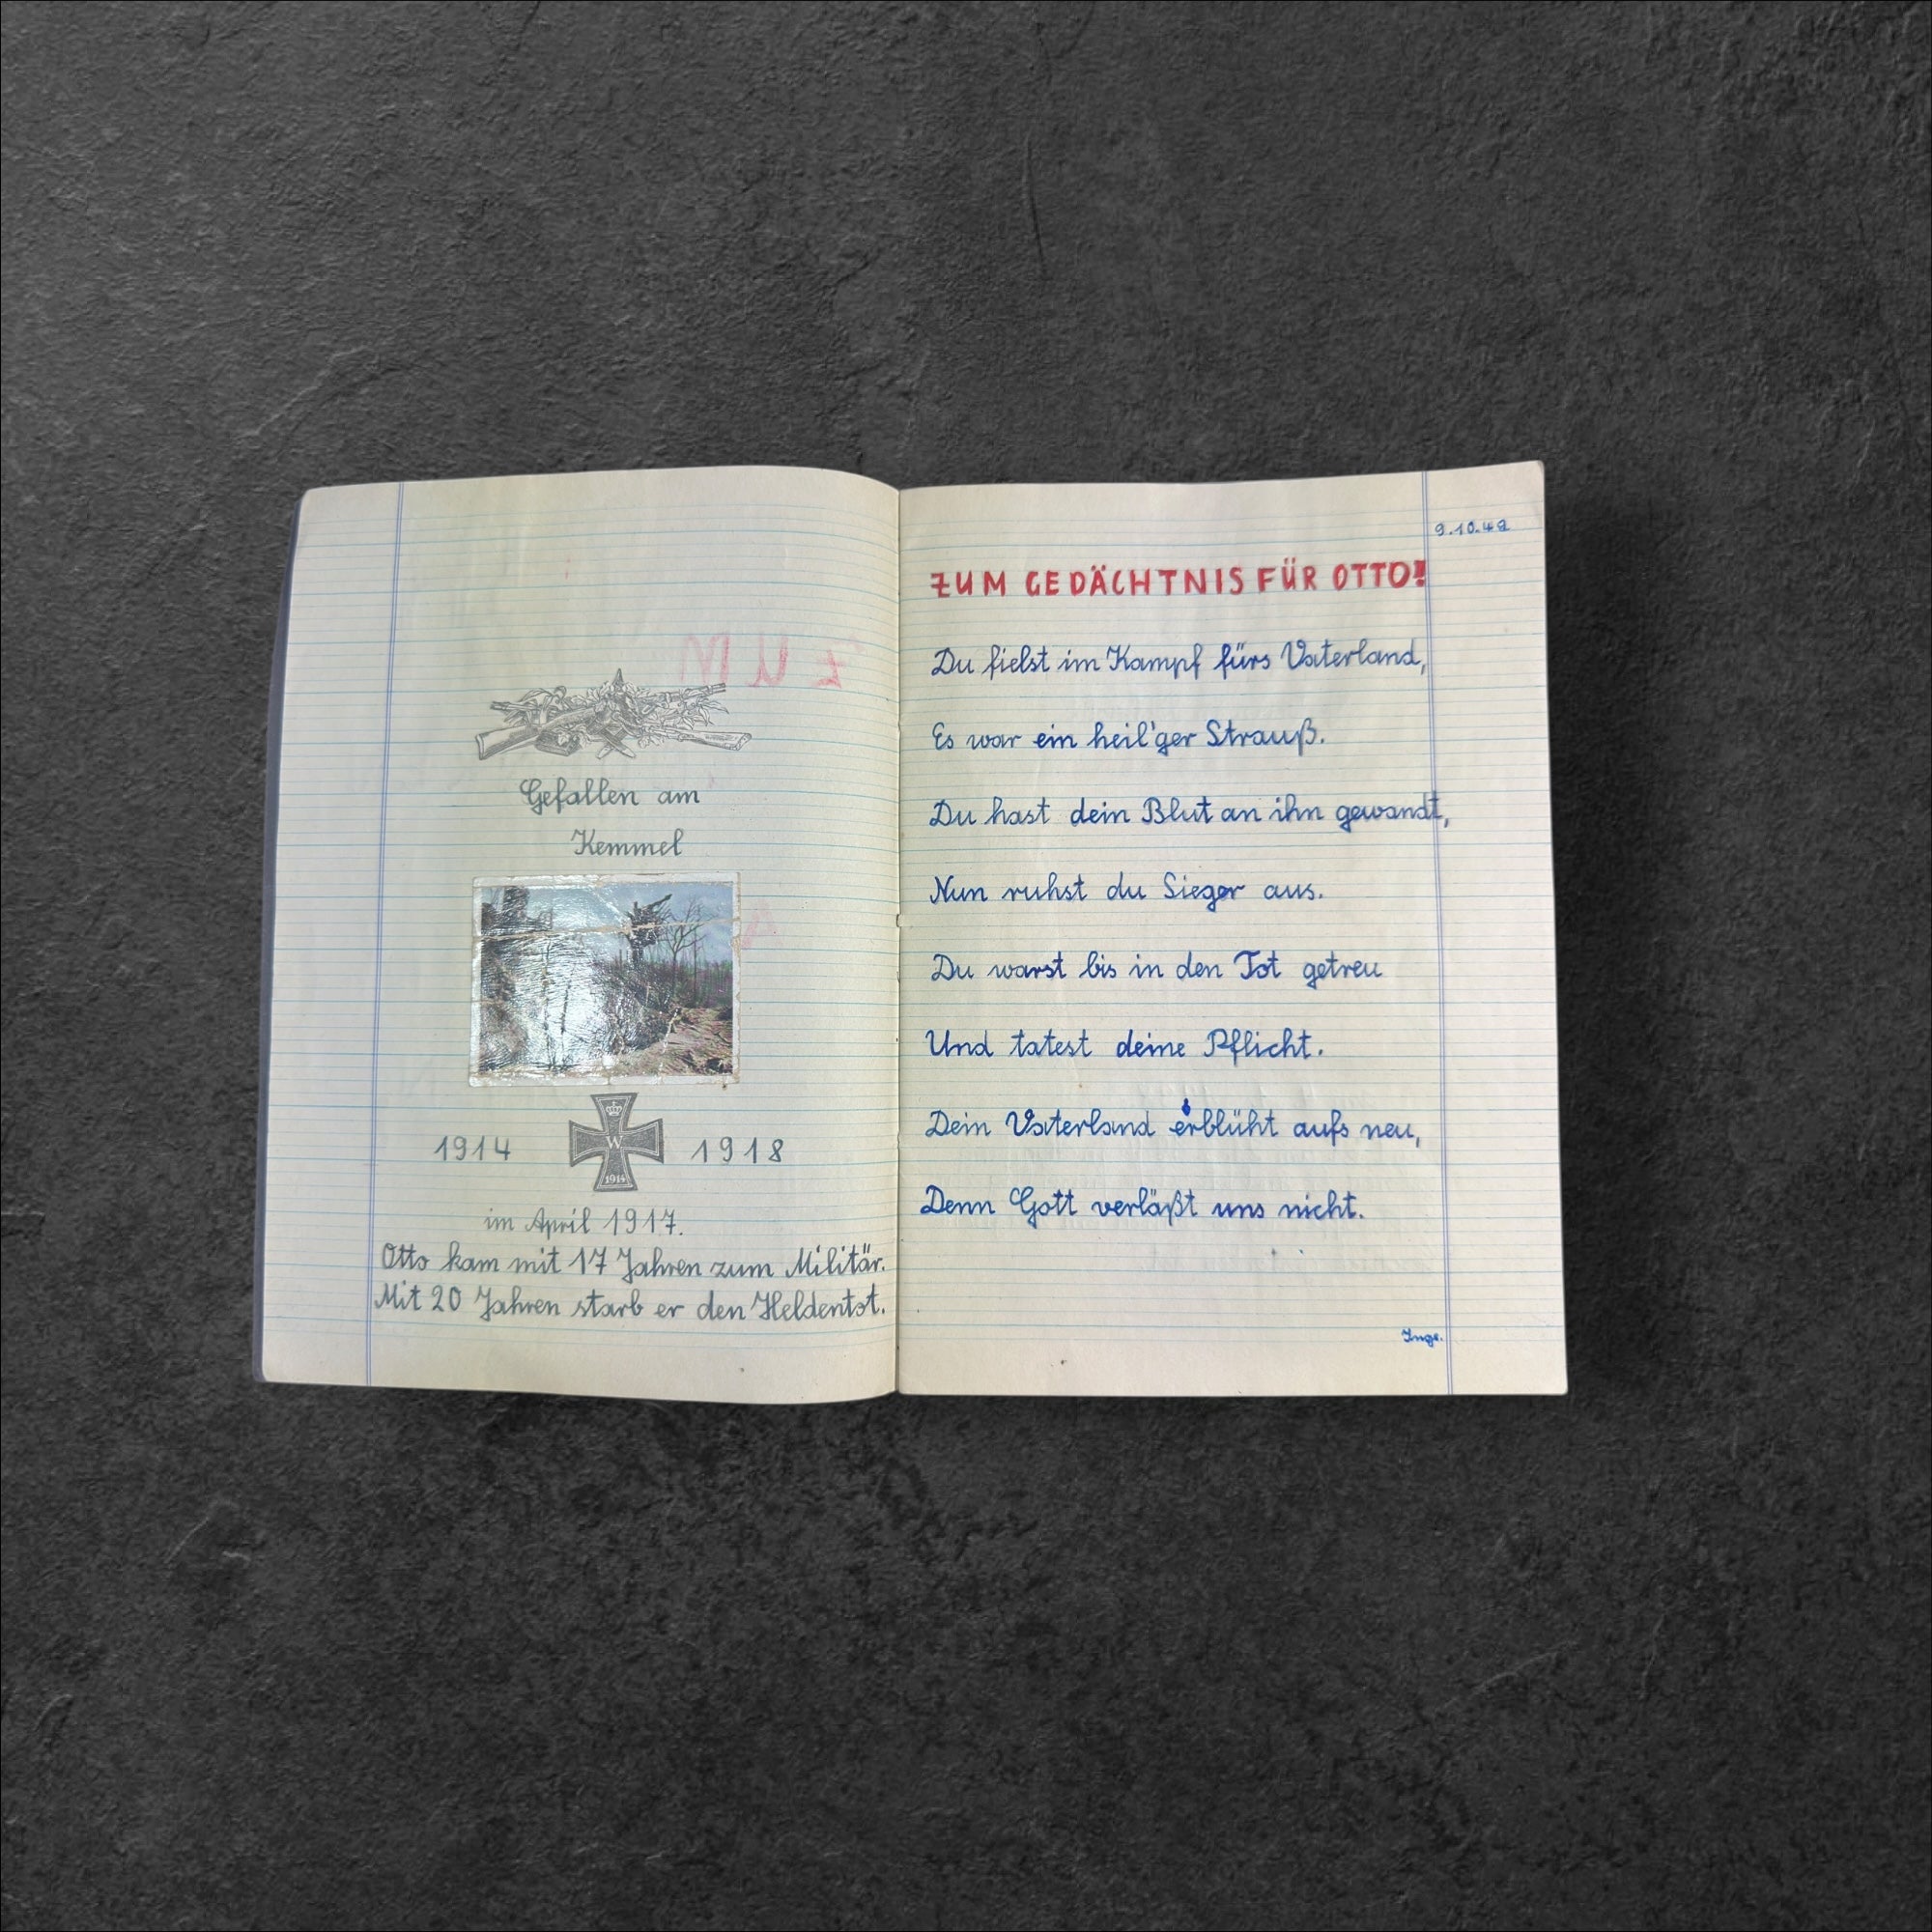 Gefallen am
Kemmel
1914 W 1914 1918
im April 1917.
Otto kam mit 17 Jahren zum Militär.
Mit 20 Jahren starb er den Heldentot.
9.10.42
ZUM GEDÄCHTNIS FÜR OTTO!
Du fielst im Kampf fürs Vaterland,
Es war ein heil'ger Strauß.
Du hast dein Blut an ihn gewandt,
Nun ruhst du Sieger aus.
Du warst bis in den Tot getreu
Und tatest deine Pflicht.
Dein Vaterland erblüht aufs neu,
Denn Gott verläßt uns nicht.
Inge.